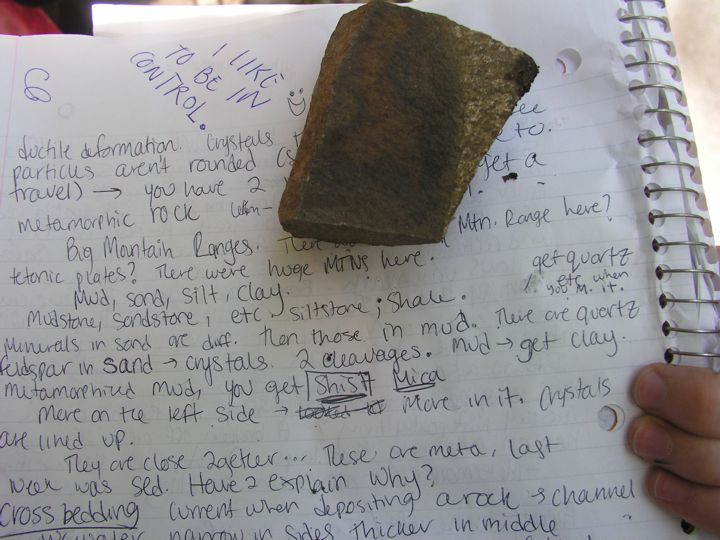 6
I LIKE
TO BE IN
CONTROL.
ductile deformation. Crystals
particus aren't rounded
travel) → you have 2 get a
metamorphic rock
Big Mountain Ranges. There Mtn. Range here?
tetonic plates? There were huge MTNS here.
get quartz
etc when
you m. it.
Mud, sand, silt, clay.
Mudstone, sandstone, etc siltstone; Shale.
Minerals in sand are diff. then those in mud. There are quartz
feldspar in sand → crystals. 2 cleavages. Mud → get clay.
metamorphized mud, you get Shist Mica
More on the left side → More in it. Crystals
are lined up.
They are close 2gether... These are meta, last
week was sed. Have 2 explain why?
Cross bedding current when depositing a rock → channel
narrow in sides thicker in middle